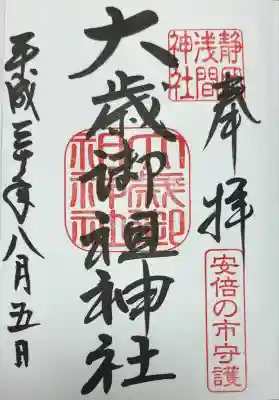 奉拝
静岡浅間神社
安倍の市守護
大歳御祖神社
大歳御祖神社
平成三十年八月五日